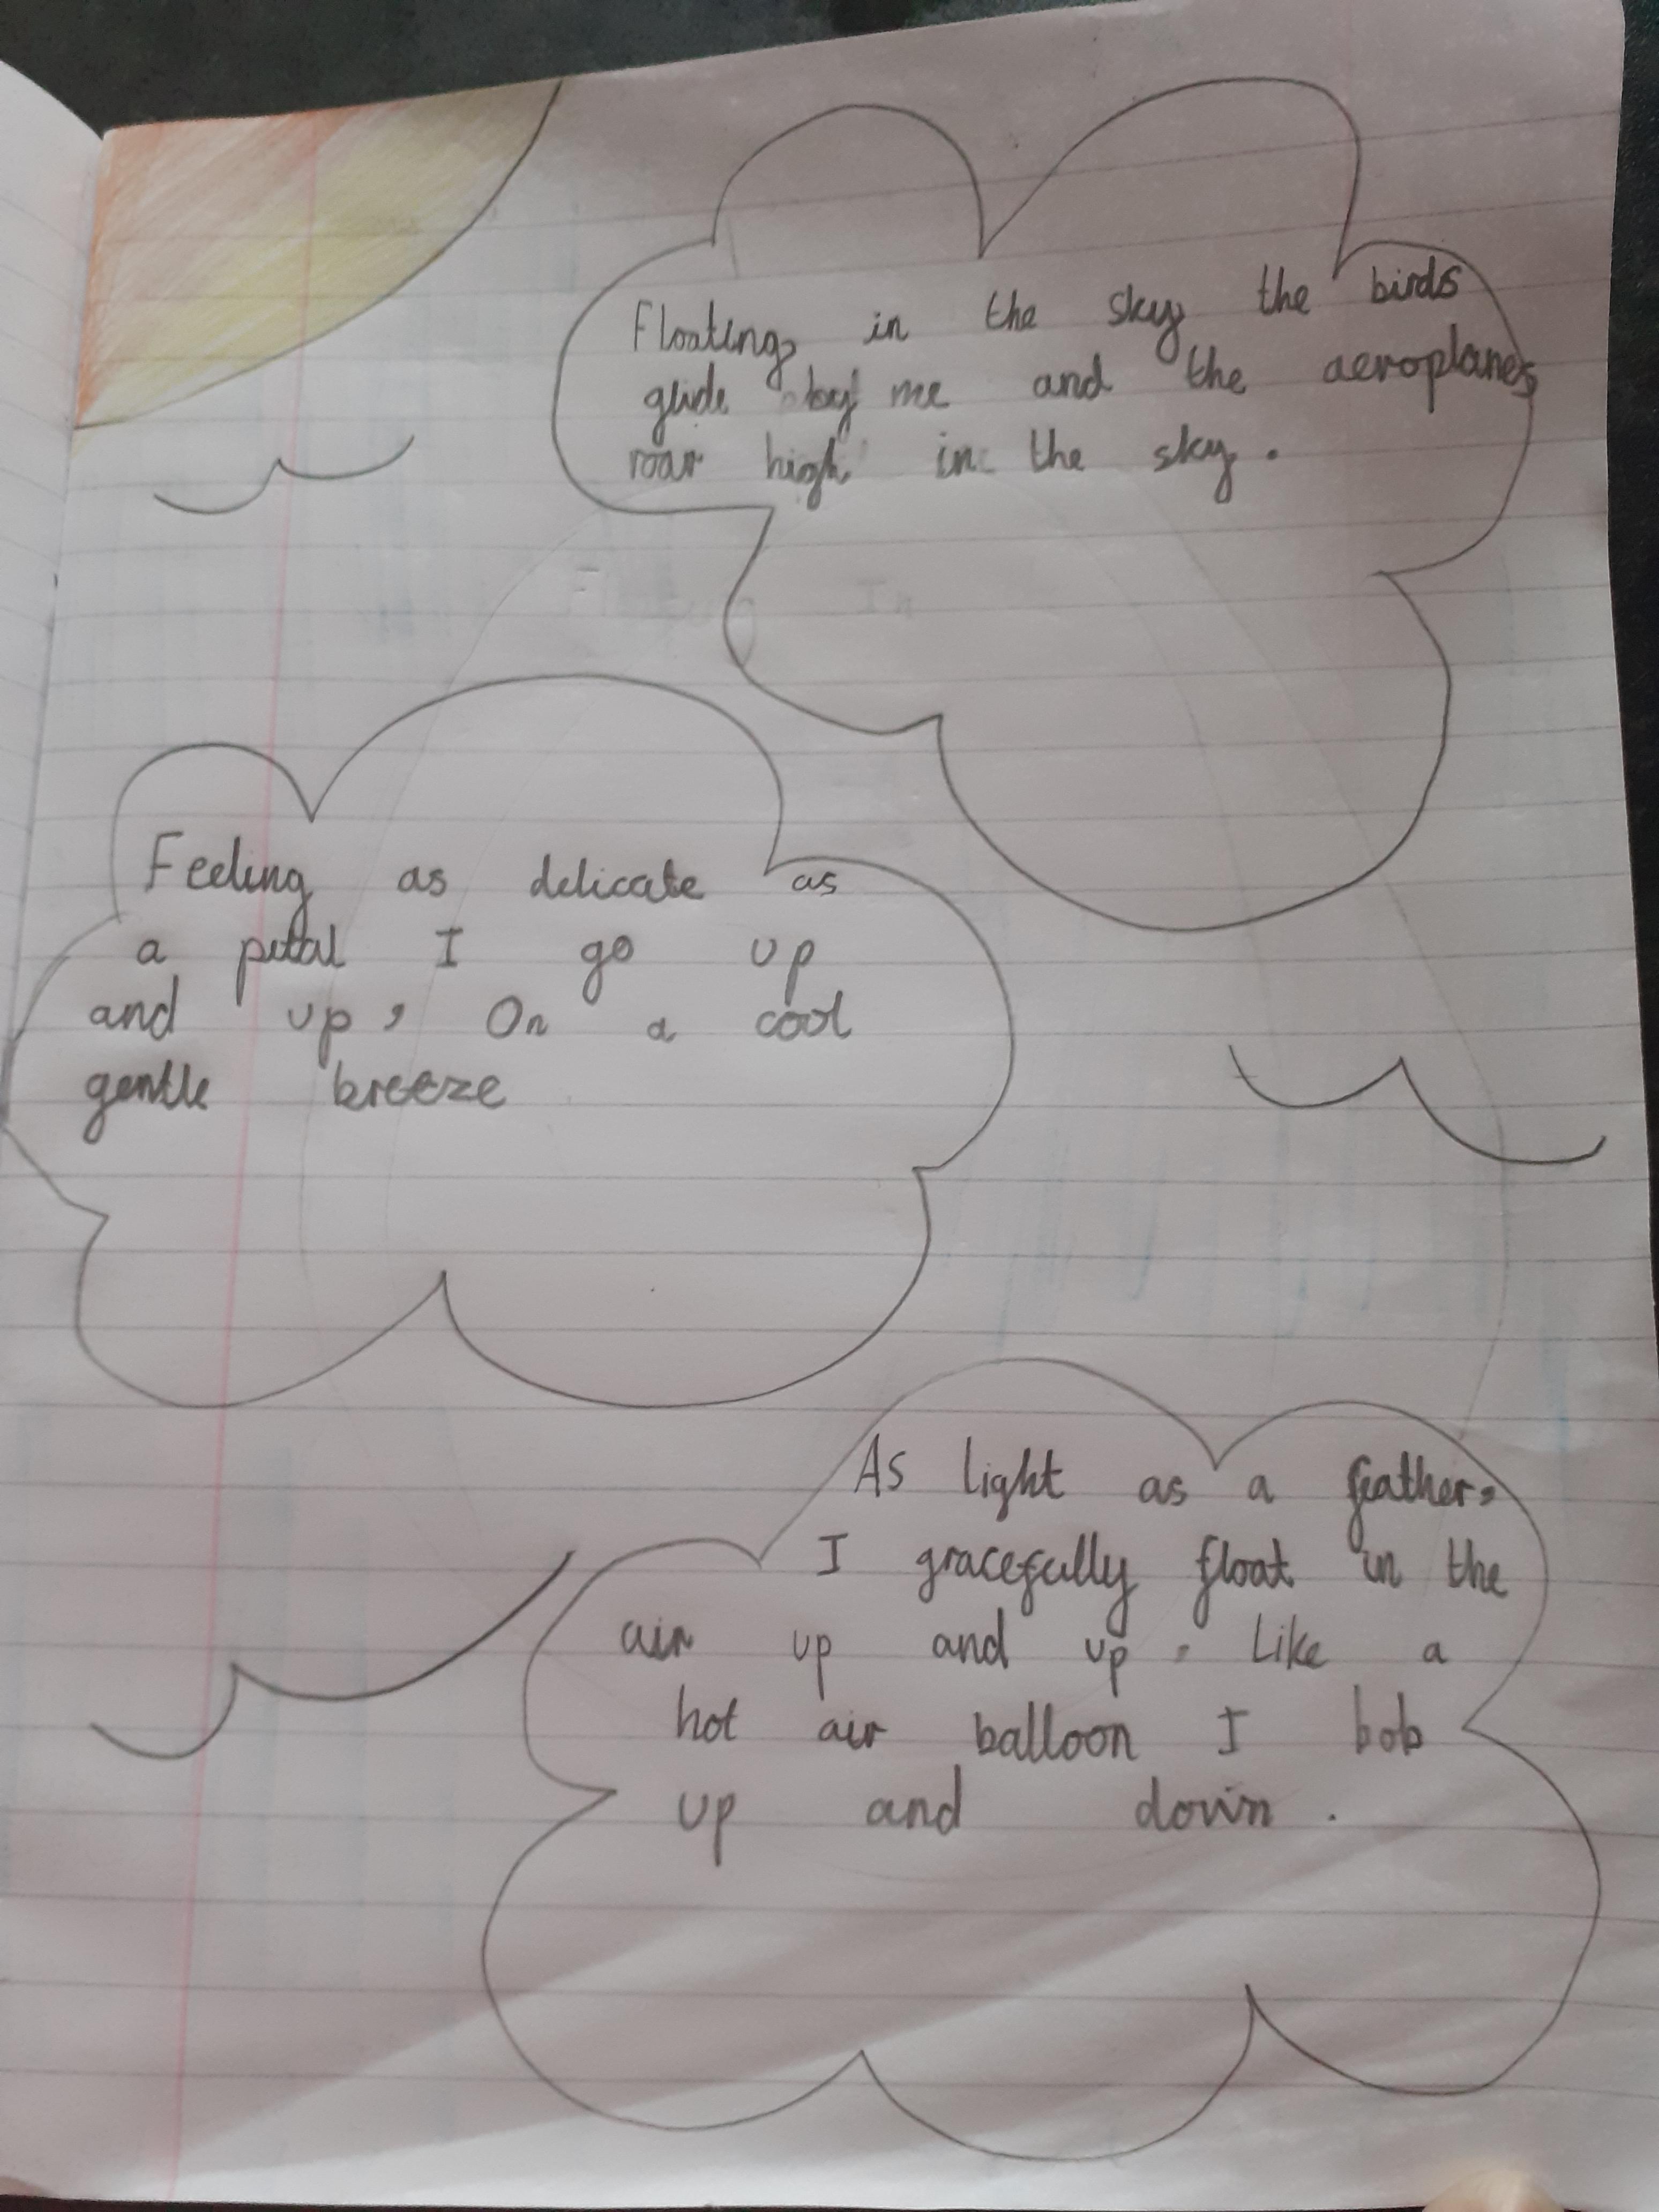 Floating in the sky the birds
glide by me and the aeroplanes
roar high in the sky.
Feeling as delicate as
a petal I go up
and up, On a cool
gentle breeze
As light as a feather,
I gracefully float in the
air up and up. Like a
hot air balloon I bob
up and down.